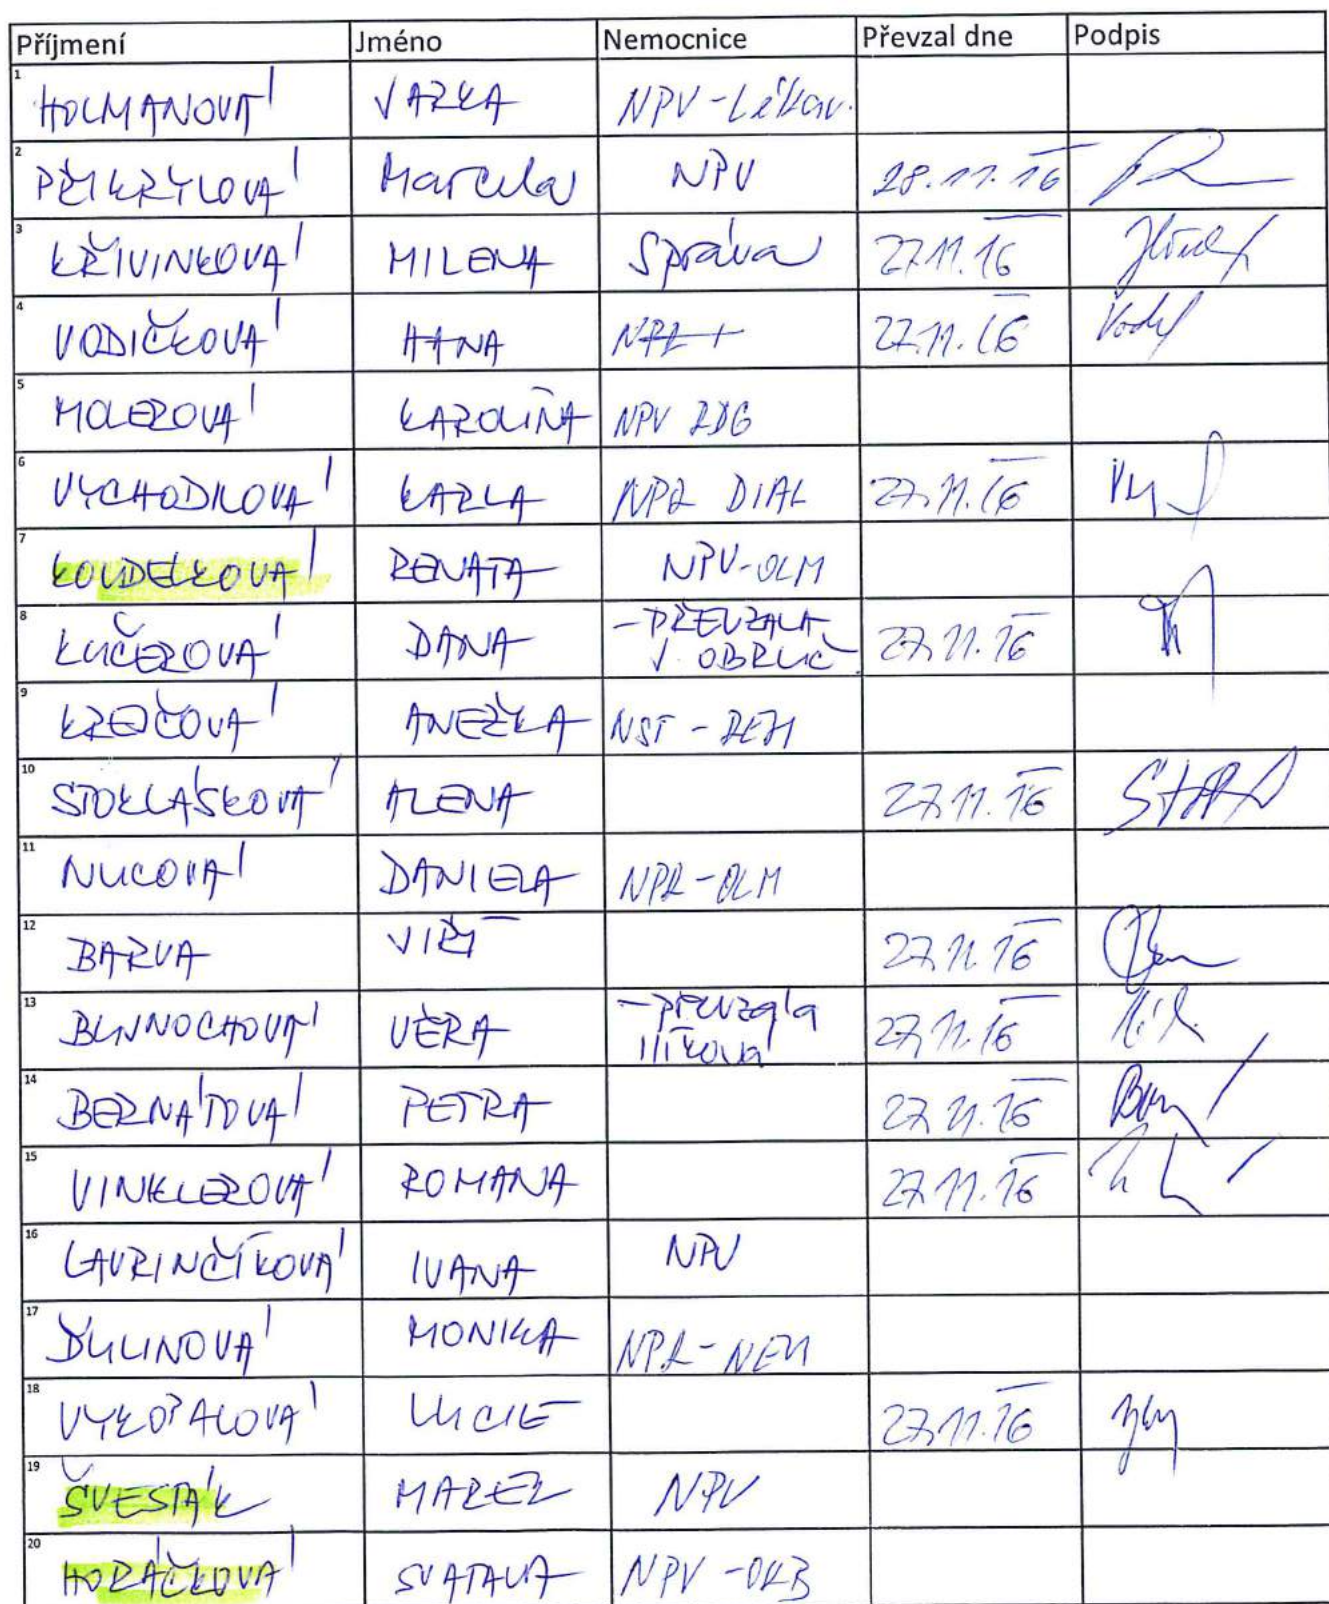 Příjmení Jméno Nemocnice Převzal dne Podpis
1 HOLMANOVÁ JARKA NPV - Lékár.
2 PŘIKRYLOVÁ Marcela NPV 28.11.16
3 KŘIVINKOVÁ MILENA Správa 27.11.16
4 VODIČKOVÁ HANA 27.11.16
5 MOLEROVÁ KAROLÍNA NPV RDG
6 VYCHODILOVÁ KARLA NPR DIAL 27.11.16
7 KOUDELKOVÁ RENATA NPV-OLM
8 KUČEROVÁ DANA - PŘEVZALA 27.11.16
J. OBRLIČ
9 KREJČOVÁ ANEŽKA NST - REH
10 STOKLÁSKOVÁ ALENA 27.11.16
11 NUCOVÁ DANIELA NPR-OLM
12 BARVA JIŘÍ 27.11.16
13 VĚRA - převzala 27.11.16
Ilíková
14 BERNÁTOVÁ PETRA 27.11.16
15 VINKLEROVÁ ROMANA 27.11.16
16 LAVRINČÍKOVÁ IVANA NPV
17 MONIKA NPR-NEU
18 VYKOPALOVÁ LUCIE 27.11.16
19 ŠVESTÁK MAREK NPV
20 HORÁČKOVÁ SVATAVA NPV - OKB